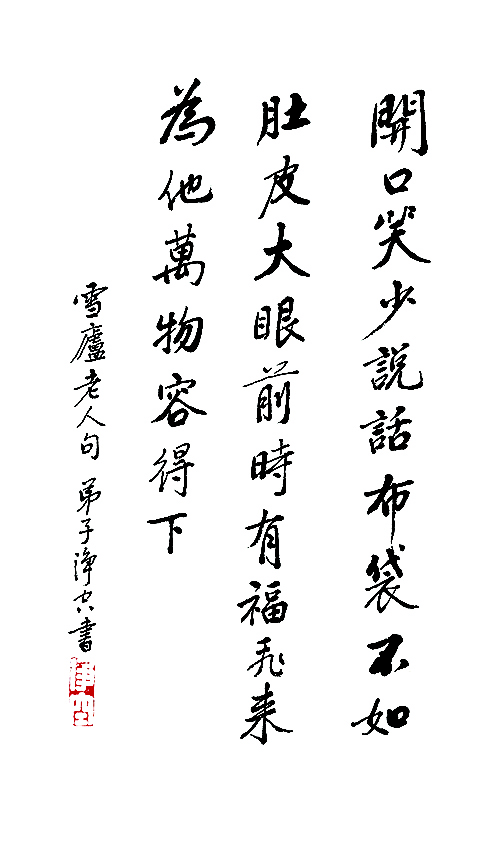 開口笑少說話布袋不如
肚皮大眼前時有福飛来
為他萬物容得下
雪廬老人句 弟子淨空書